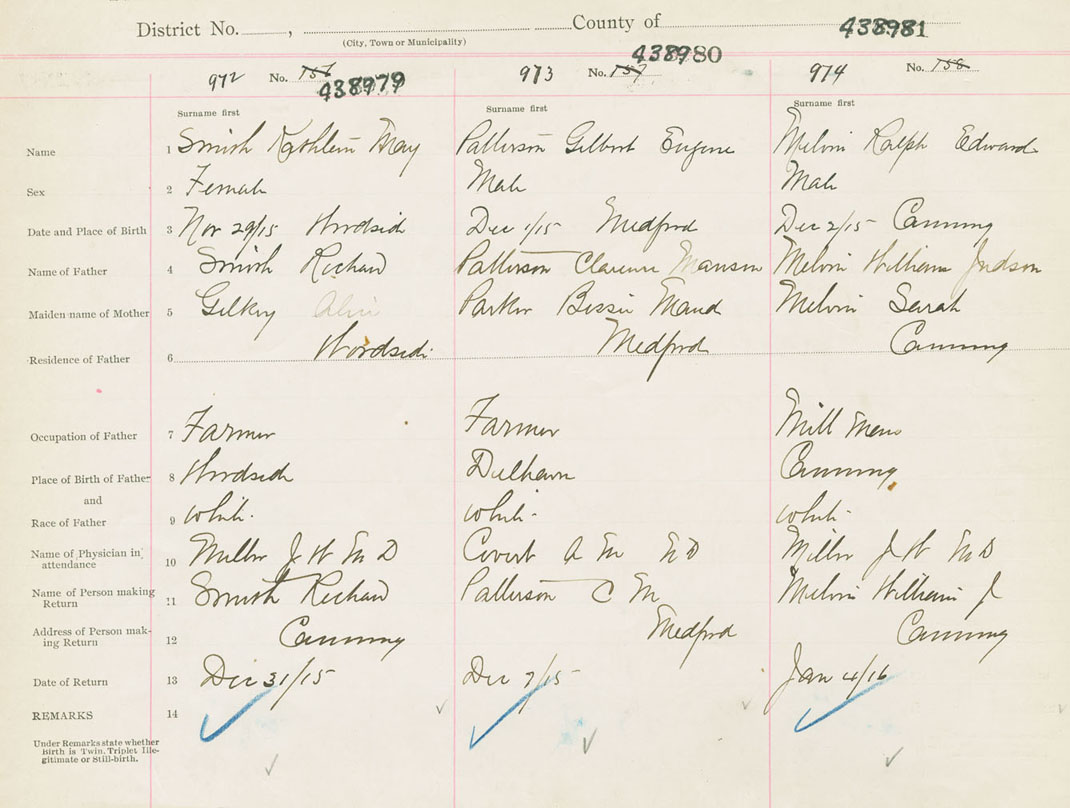 District No. , County of 438981
(City, Town or Municipality) 438980
972 No. 156 973 No. 157 974 No. 158
438979
Surname first Surname first Surname first
Name 1 Smith Kathleen May Patterson Gilbert Eugene Melvin Ralph Edward
Sex 2 Female Male Male
Date and Place of Birth 3 Nov 29/15 Woodside Dec 1/15 Medford Dec 2/15 Canning
Name of Father 4 Smith Richard Patterson Clarence Manson Melvin William Judson
Maiden name of Mother 5 Gilkey Alice Parker Bessie Maud Melvin Sarah
Residence of Father 6 Woodside Medford Canning
Occupation of Father 7 Farmer Farmer Mill Man
Place of Birth of Father 8 Woodside Delhaven Canning
and
Race of Father 9 white. white. white.
Name of Physician in attendance 10 Miller J W M D Covert A M M D Miller J W M D
Name of Person making Return 11 Smith Richard Patterson C M Melvin William J
Address of Person mak-ing Return 12 Canning Medford Canning
Date of Return 13 Dec 31/15 Dec 7/15 Jan 4/16
REMARKS 14
Under Remarks state whether
Birth is Twin, Triplet Ille-
gitimate or Still-birth.